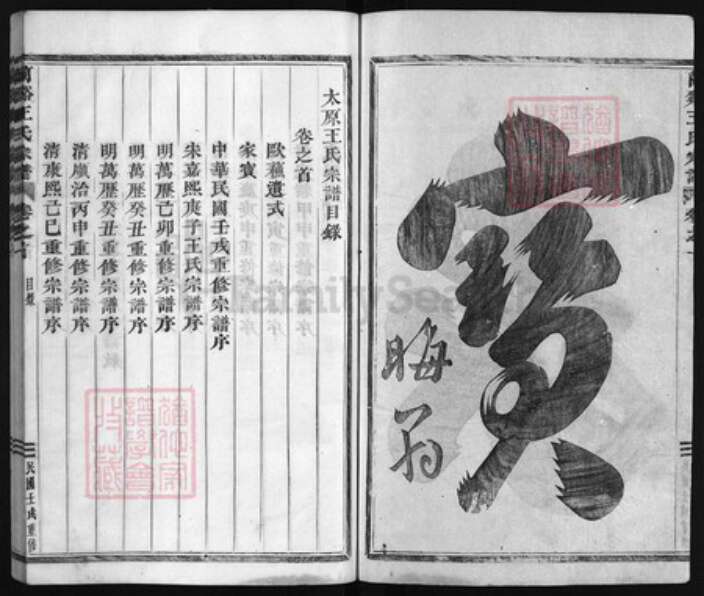 寶
晦翁
太原王氏宗譜目錄
卷之首
歐蘓遺式
家寶
中華民國壬戌重修宗譜序
宋嘉熙庚子王氏宗譜序
明萬歷己卯重修宗譜序
明萬歷癸丑重修宗譜序
明萬歷癸丑重修宗譜序
清順治丙申重修宗譜序
清康熙己巳重修宗譜序
王氏宗譜
目錄
民國壬戌重修
FamilySearch